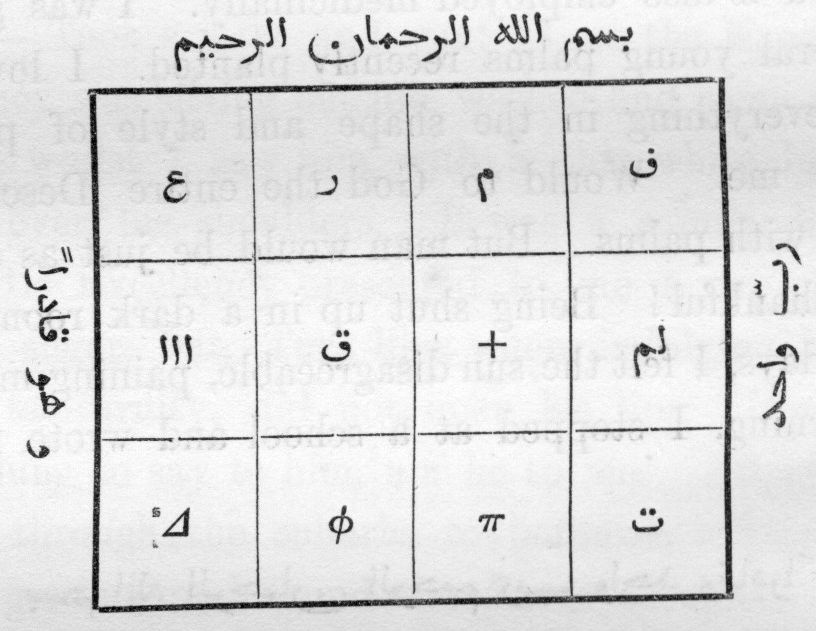 بسم الله الرحمان الرحيم
ف م ر ع
لم + ق ااا
ت π ϕ
واحد
و هو قادراً